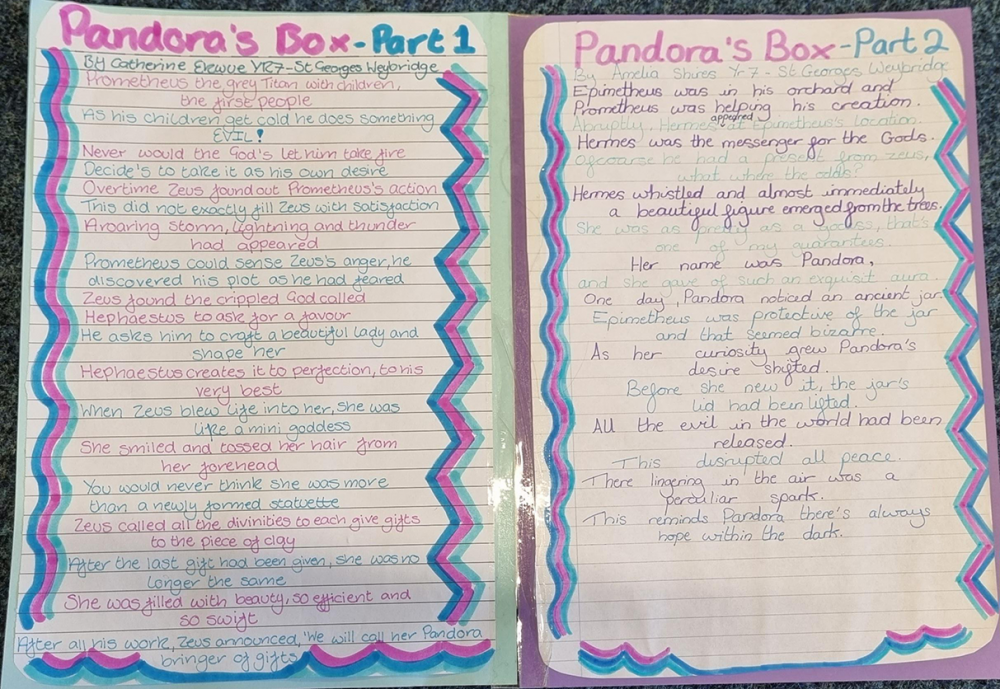 Pandora's Box-Part 1
By Catherine YR7-St Georges Weybridge
Prometheus the grey Titan with children,
the first people
As his children get cold he does something
EVIL!
Never would the God's let him take fire
Decide's to take it as his own desire
Overtime Zeus found out Prometheus's action
This did not exactly fill Zeus with satisfaction
A roaring storm, lightning and thunder
had appeared
Prometheus could sense Zeus's anger, he
discovered his plot as he had feared
Zeus found the crippled God called
Hephaestus to ask for a favour
He asks him to craft a beautiful lady and
shape her
Hephaestus creates it to perfection, to his
very best
When Zeus blew life into her, she was
like a mini goddess
She smiled and tossed her hair from
her forehead
You would never think she was more
than a newly formed statuette
Zeus called all the divinities to each give gifts
to the piece of clay
After the last gift had been given, she was no
longer the same
She was filled with beauty, so efficient and
so swift
After all his work, Zeus announced, 'We will call her Pandora
bringer of gifts
Pandora's Box-Part 2
By Amelia Shires Yr7 - St.Georges Weybridge
Epimetheus was in his orchard and
Prometheus was helping his creation.
Abruptly, Hermes appeared at Epimetheus's location.
Hermes was the messenger for the Gods.
Ofcoarse he had a present from Zeus,
what where the odds?
Hermes whistled and almost immediately
a beautiful figure emerged from the trees.
She was as pretty as a goddess, that's
one of my guarantees.
Her name was Pandora,
and she gave of such an exquisit aura.
One day, Pandora noticed an ancient jar.
Epimetheus was protective of the jar
and that seemed bizarre.
As her curiosity grew Pandora's
desire shifted.
Before she new it, the jar's
lid had been lifted.
All the evil in the world had been
released.
This disrupted all peace.
There lingering in the air was a
peculiar spark.
This reminds Pandora there's always
hope within the dark.